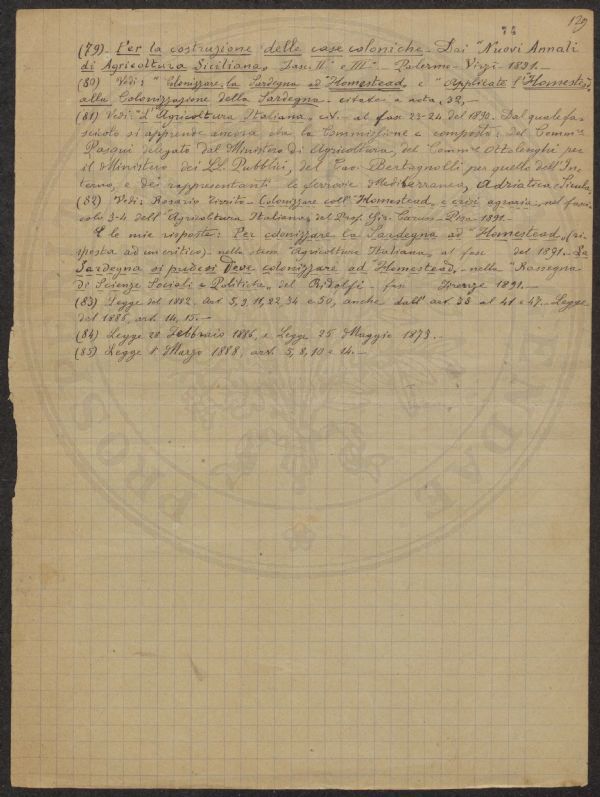 74
129
(79). Per la costruzione delle case coloniche. Dai "Nuovi Annali
di Agricoltura Siciliana, Fasc. II° e III° - Palermo - Virzì - 1891.
(80) Vedi: "Colonizzare la Sardegna ad "Homestead, e "Applicate l'"Homestead,
alla Colonizzazione della Sardegna - citate a nota, 32, -
(81) Vedi: "L'Agricoltura Italiana, al fas. 23-24 del 1890. Dal quale fa-
scicolo si apprende ancora che la Commissione è composta: del Comm.
Pasqui delegato dal Ministero di Agricoltura, del Comm. Ottolenghi per
il Ministero dei LL. Pubblici, del Cav. Bertagnolli per quello dell'In-
terno, e dei rappresentanti le ferrovie Mediterranea, Adriatica e Sicula.
(82) Vedi: Rosario Cirrito - Colonizzare coll'"Homestead, e crisi agraria, nel fasci-
colo 3-4 dell'Agricoltura Italiana, del Prof. Gir. Caruso - Pisa 1891.-
E le mie risposte: Per colonizzare la Sardegna ad "Homestead, (ri-
sposta ad un critico) - nella stessa "Agricoltura Italiana, al fasc. del 1891. La
Sardegna si può e si Deve colonizzare ad "Homestead, - nella "Rassegna
di Scienze Sociali e Politiche, del Ridolfi - fas. Firenze 1891.-
(83) Legge del 1882. Art 5, 9, 11, 22, 34 e 50, anche dall'art. 38 al 41 e 47. - Legge
del 1886, art. 14, 15. -
(84) Legge 28 Febbraio 1886, e Legge 25 Maggio 1873. -
(85) Legge 1° Marzo 1888, art. 5, 8, 10 e 14. -